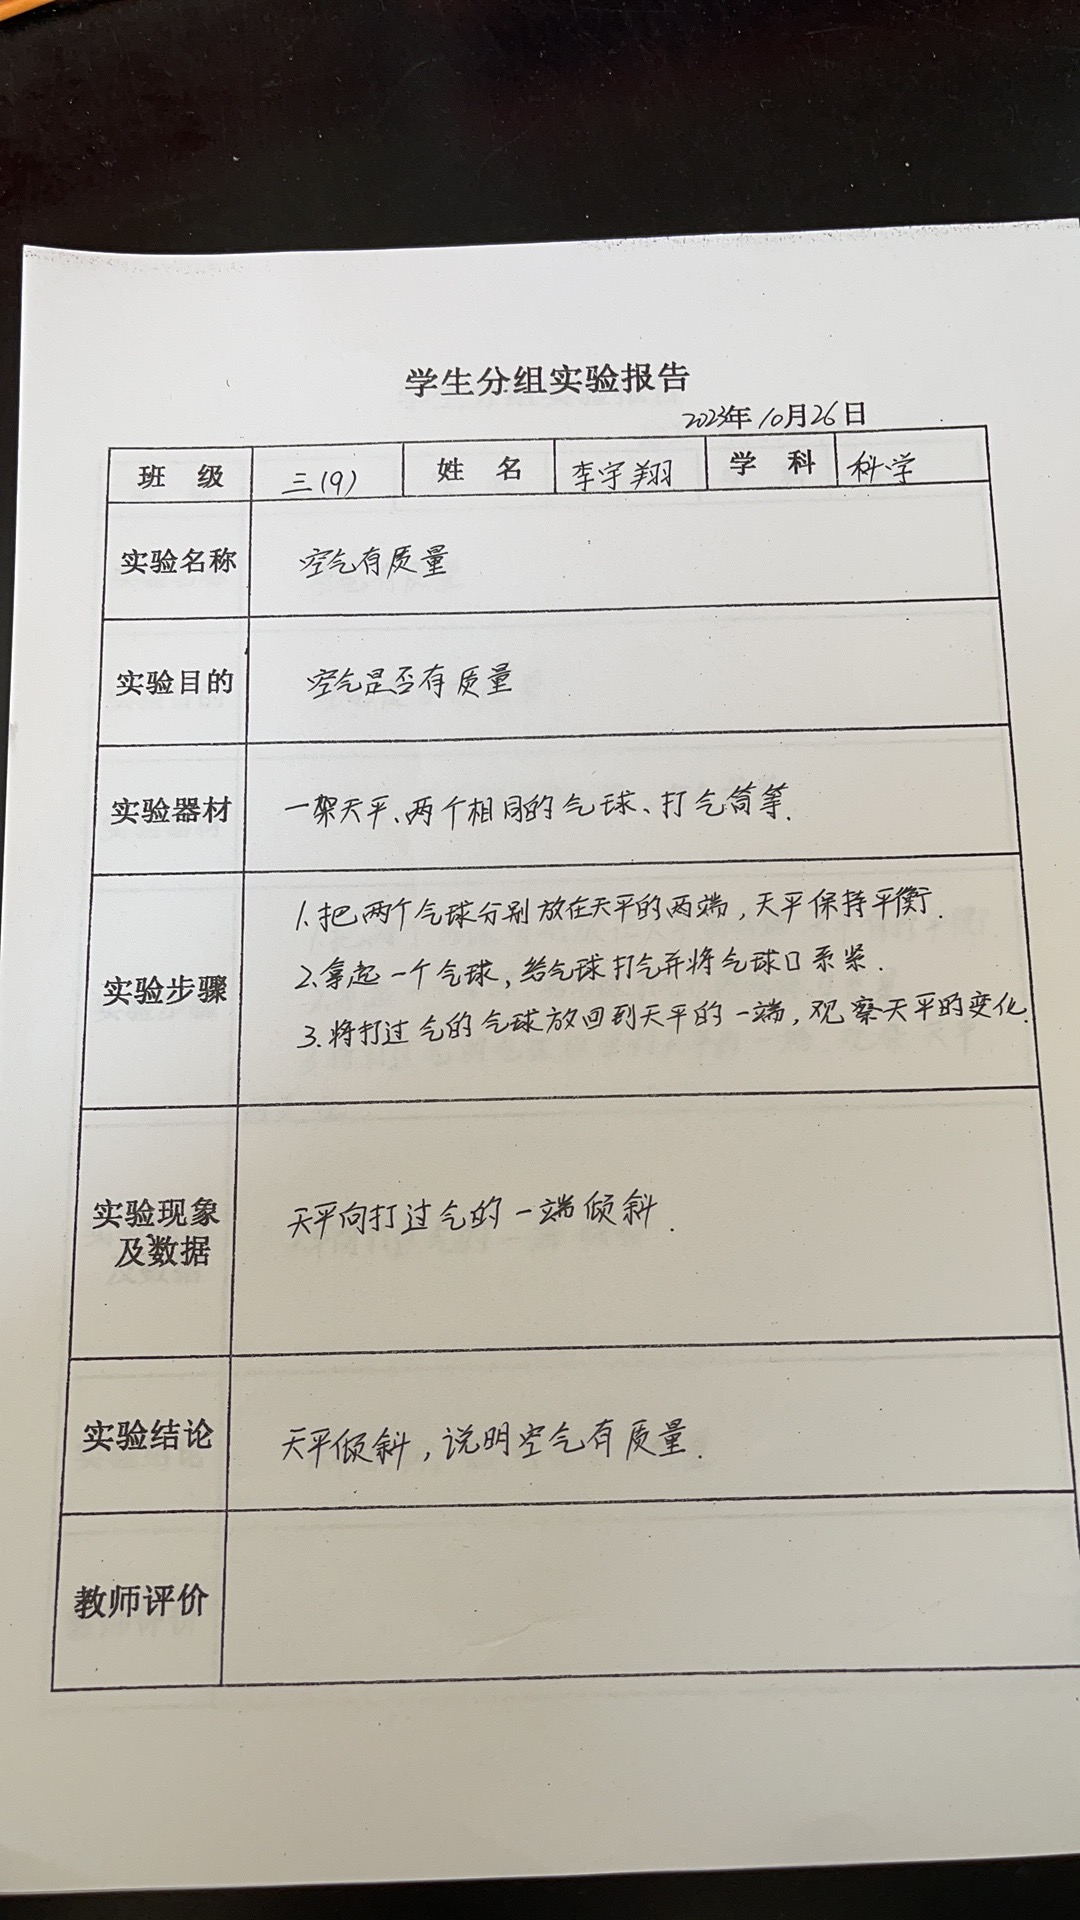 学生分组实验报告
2023年10月26日
班 级 三(9) 姓 名 李宇翔 学 科 科学
实验名称 空气有质量
实验目的 空气是否有质量
实验器材 一架天平、两个相同的气球、打气筒等.
实验步骤
1.把两个气球分别放在天平的两端,天平保持平衡.
2.拿起一个气球,给气球打气并将气球口系紧.
3.将打过气的气球放回到天平的一端,观察天平的变化.
实验现象
及数据
天平向打过气的一端倾斜.
实验结论 天平倾斜,说明空气有质量.
教师评价